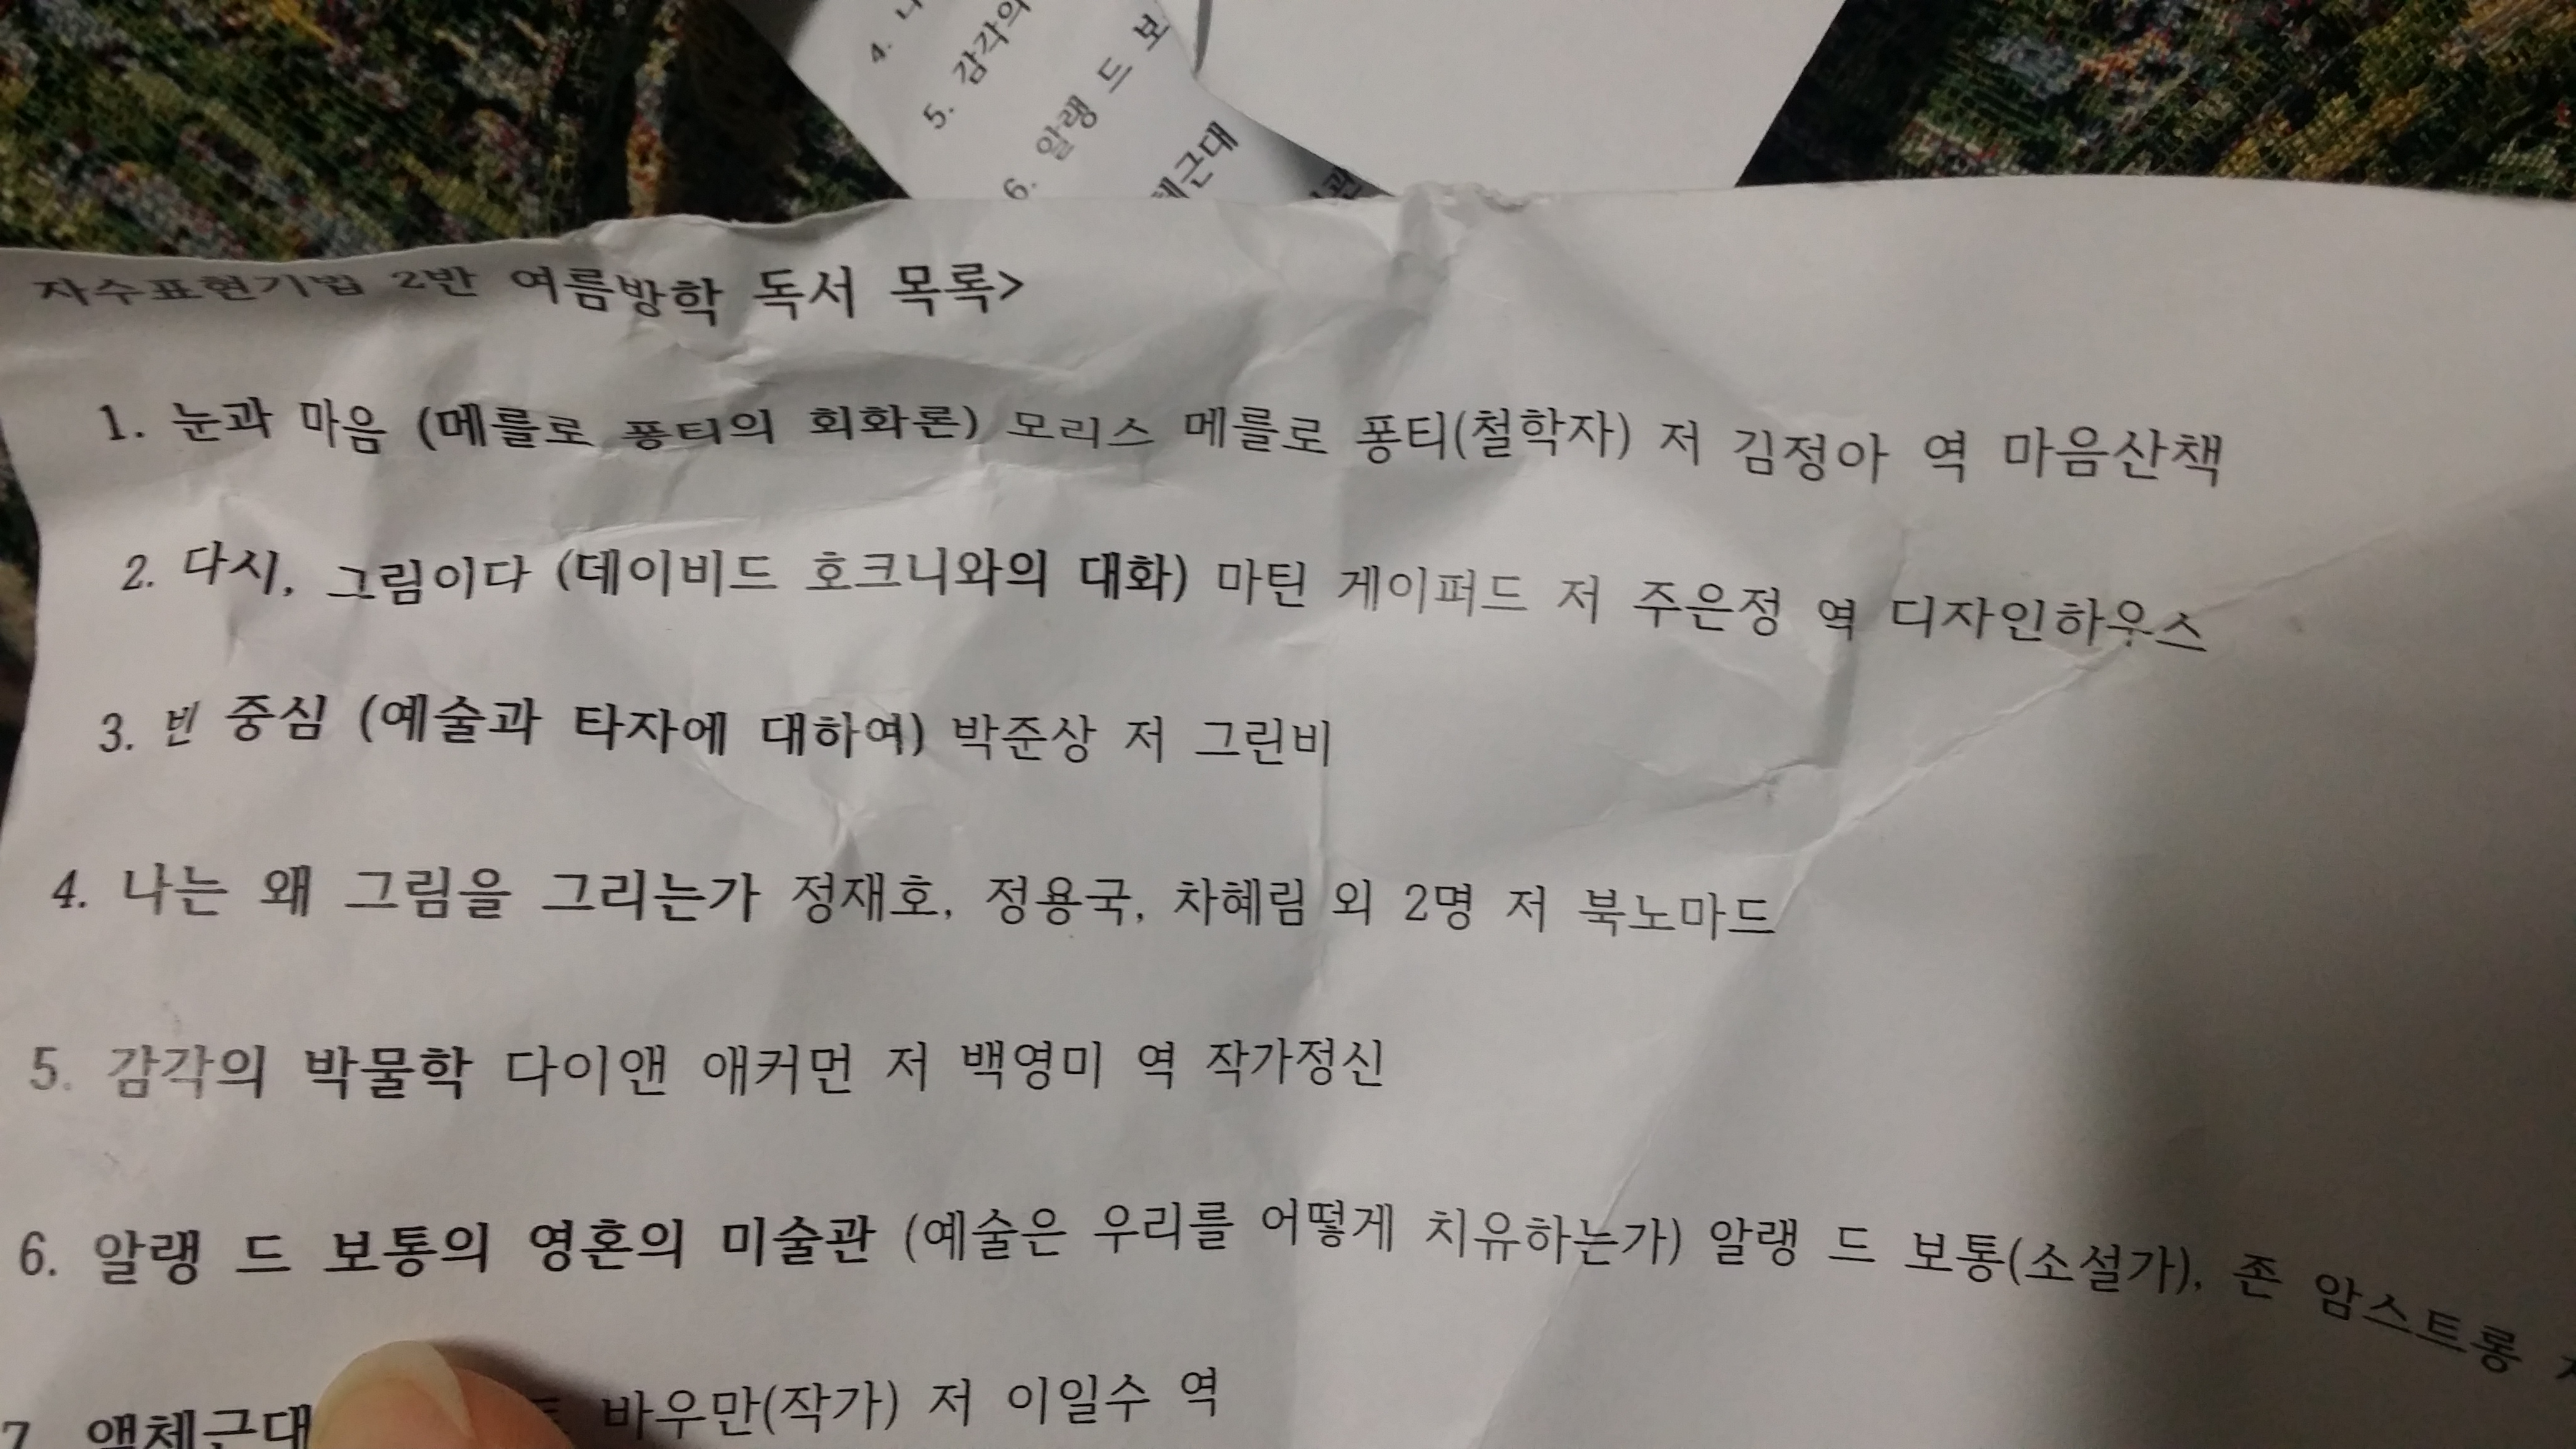 4.
5. 감각의
6. 알랭 드 보
체근대
관
자수표현기법 2반 여름방학 독서 목록>
1. 눈과 마음 (메를로 퐁티의 회화론) 모리스 메를로 퐁티(철학자) 저 김정아 역 마음산책
2. 다시, 그림이다 (데이비드 호크니와의 대화) 마틴 게이퍼드 저 주은정 역 디자인하우스
3. 빈 중심 (예술과 타자에 대하여) 박준상 저 그린비
4. 나는 왜 그림을 그리는가 정재호, 정용국, 차혜림 외 2명 저 북노마드
5. 감각의 박물학 다이앤 애커먼 저 백영미 역 작가정신
6. 알랭 드 보통의 영혼의 미술관 (예술은 우리를 어떻게 치유하는가) 알랭 드 보통(소설가), 존 암스트롱
7. 액체근대 바우만(작가) 저 이일수 역